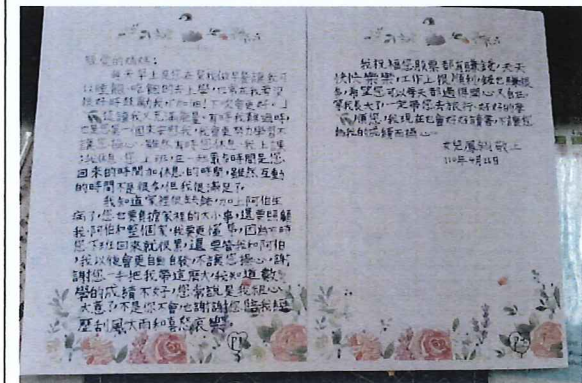 親愛的媽媽:
每天早上是您在幫我做早餐讓我可
以睡飽、吃飽的去上學,也常在我考沒
很好時鼓勵我,「加油!下次會更好。」
這讓我又充滿能量。有時我難過時,
也是您第一個來安慰我,我會更努力學習不
讓您操心。雖然有時您休息,我上課
;我休息,您上班,在一起最多時間是您
回來的時間加休息的時間,雖然互動
的時間不是很多,但我很滿足了。
我知道家裡很缺錢,加上阿伯生
病了,您也要負擔家裡的大小事,還要照顧
我、阿伯和整個家,我要更懂事,因為有時
您下班回來就很累,還要管我和阿伯
,我以後會更自動自發,不讓您操心,謝
謝您一手把我帶這麼大,我知道數
學的成績不好,您常說是我粗心
大意了,不是你不會,也謝謝您陪我經
歷刮風大雨和喜怒哀樂
P1
我祝福您股票都有賺錢,天天
快快樂樂,工作上很順利,錢也賺很
多,希望您可以每天都過得開心又自在,
等我長大了,一定帶您去旅行,好好的孝
順您,我現在也會好好讀書,不讓您
為我的成績而操心。
女兒 敬上
110年4月26日
P2